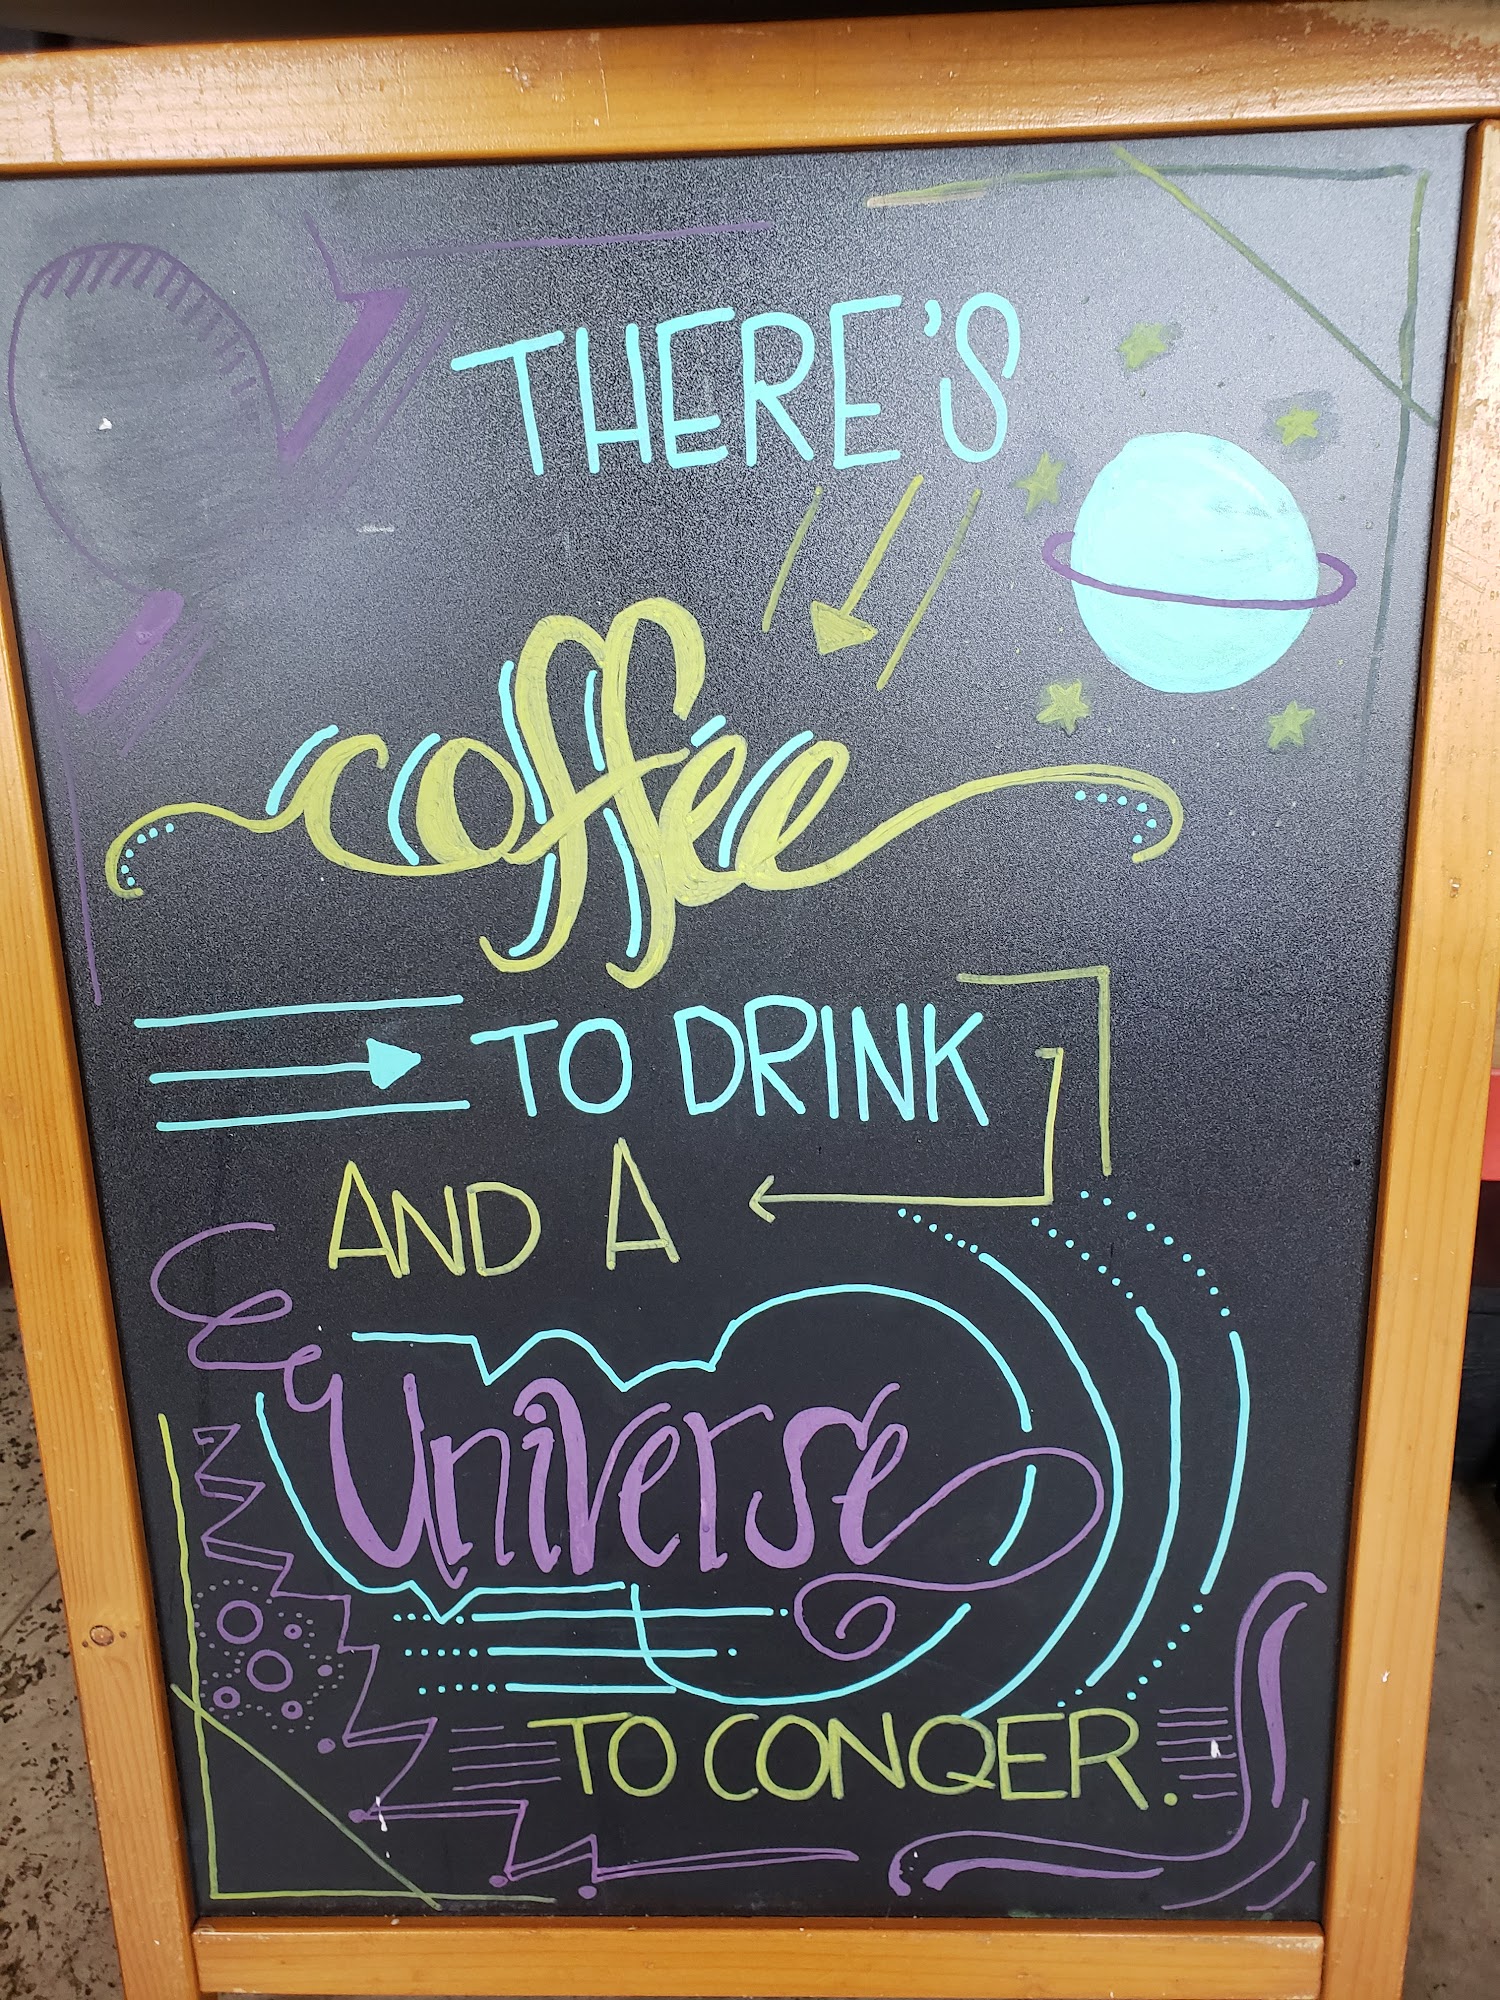 THERE'S
coffee
TO DRINK
AND A
Universe
TO CONQER.